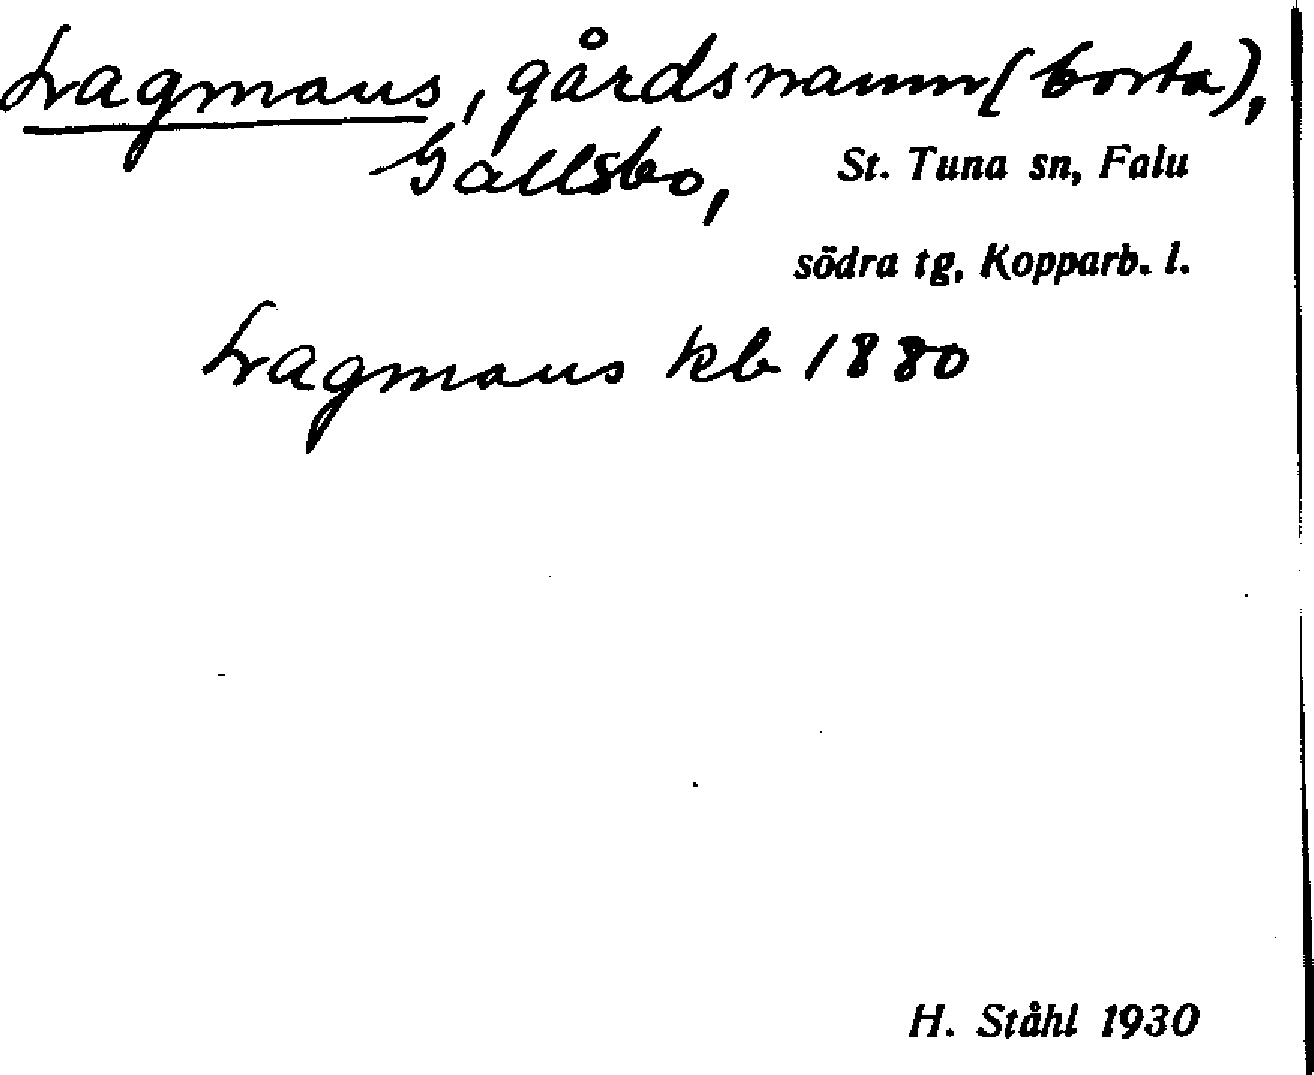 Lagmans, gårdsnamn (borta),
Gallsbo, St. Tuna sn, Falu
södra tg, Kopparb. l.
Lagmans kb 1880
H. Ståhl 1930